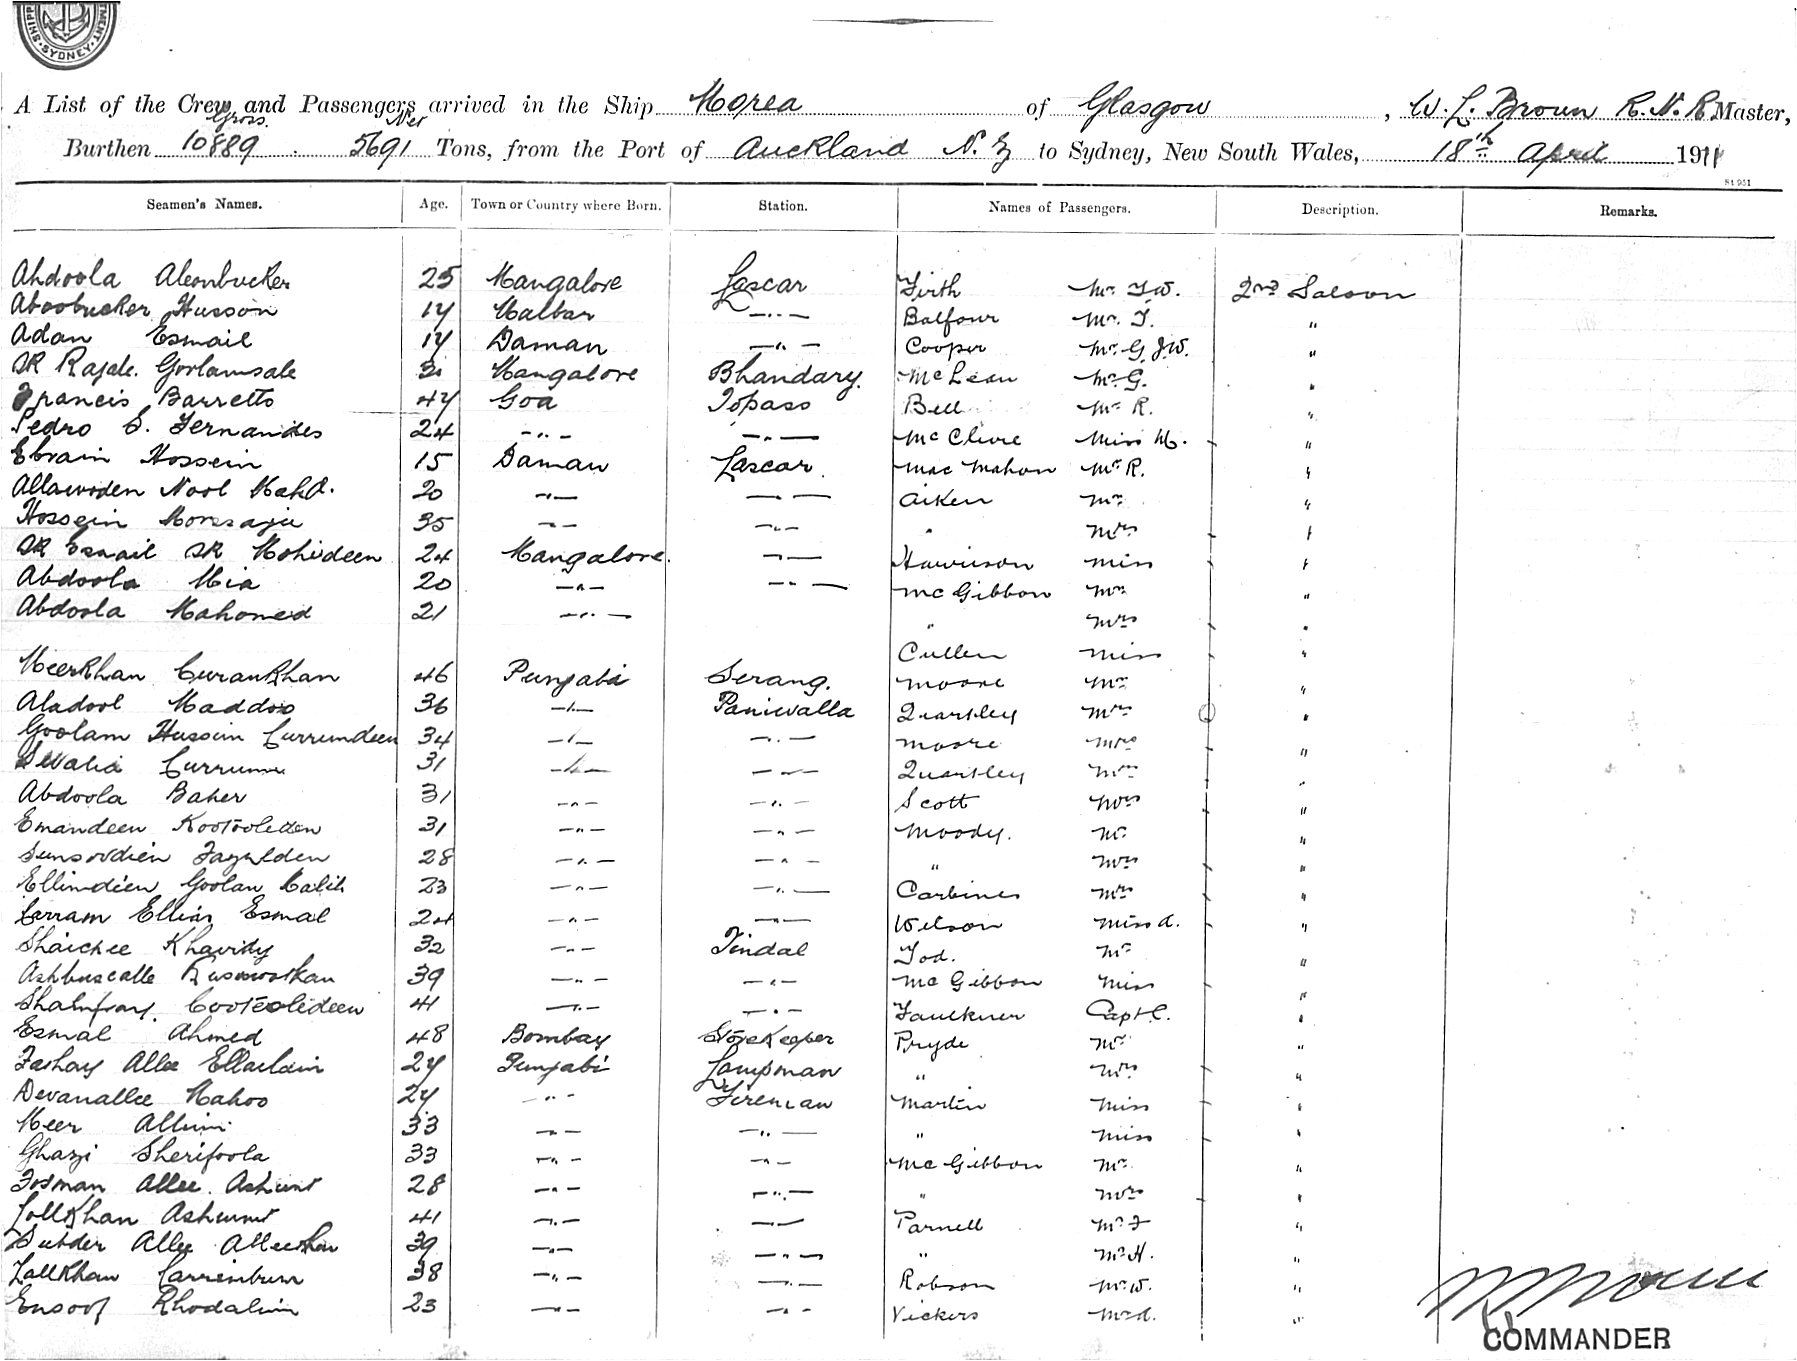 SYDNEY
A List of the Crew and Passengers arrived in the Ship Morea of Glasgow, W. L. Broun R.N.R. Master,
Gross Net
Burthen 10889 . 5691 Tons, from the Port of Auckland N.Z to Sydney, New South Wales, 18th April 1911
St 951
Seamen's Names. Age. Town or Country where Born. Station. Names of Passengers. Description. Remarks.
Abdoola 25 Mangalore Lascar Firth Mr. T.W. 2nd Saloon
Aboobucker Husson 14 Malbar —"— Balfour Mr. T. "
Adan Esmail 14 Daman —"— Cooper Mr. G.J.W. "
SK Rajale. Goolamsale 31 Mangalore Bhandary. McLean Mr. G. "
Francis Barretto 44 Goa Topass Bell Mr R. "
Pedro C. Fernandes 24 —"— —"— McClure Miss M. "
Ebraim Hossein 15 Daman Lascar Mac Mahon Mr R. "
Allawoden Nool Mahd. 20 —"— —"— Aiken Mr "
Hossein 35 —"— —"— " Mrs "
SK Esmail SK Mohideen 24 Mangalore. —"— Harrison Miss "
Abdoola Mia 20 —"— —"— McGibbon Mr "
Abdoola Mahomed 21 —"— " Mrs "
Cullen Miss "
Meerkhan Curankhan 46 Punjabi Serang. Moore Mr "
Aladool Maddoo 36 —"— Paniwalla Quartley Mrs "
Goolam Hussein Currumdeen 34 —"— —"— Moore Mrs "
31 —"— —"— Quartley Mrs "
Abdoola Baker 31 —"— —"— Scott Mrs "
Emandeen 31 —"— —"— Moody. Mr "
28 —"— —"— " Mrs "
Ellimdien Goolam 23 —"— —"— Carbines Mrs "
Ellias Esmal 24 —"— —"— Wilson Miss A. "
Shaickee Khavidy 32 —"— Tindal Tod. Mr "
39 —"— —"— McGibbon Miss "
41 —"— —"— Faulkner Capt C. "
Esmal Ahmed 48 Bombay Storekeeper Pryde Mr "
Allee 24 Punjabi Lampman " Mrs "
Devanallee Mahoo 24 —"— Fireman Martin Miss "
Meer Allum 33 —"— —"— " Miss "
Ghazi Sherifoola 33 —"— —"— McGibbon Mr "
Fosman Allee. 28 —"— —"— " Mrs "
Lollkhan 41 —"— —"— Parnell Mr F "
Subder Allee 39 —"— —"— " Mr H. "
Lallkhan 38 —"— —"— Robson Mr W. "
Ensoof 23 —"— —"— Vickers "
COMMANDER